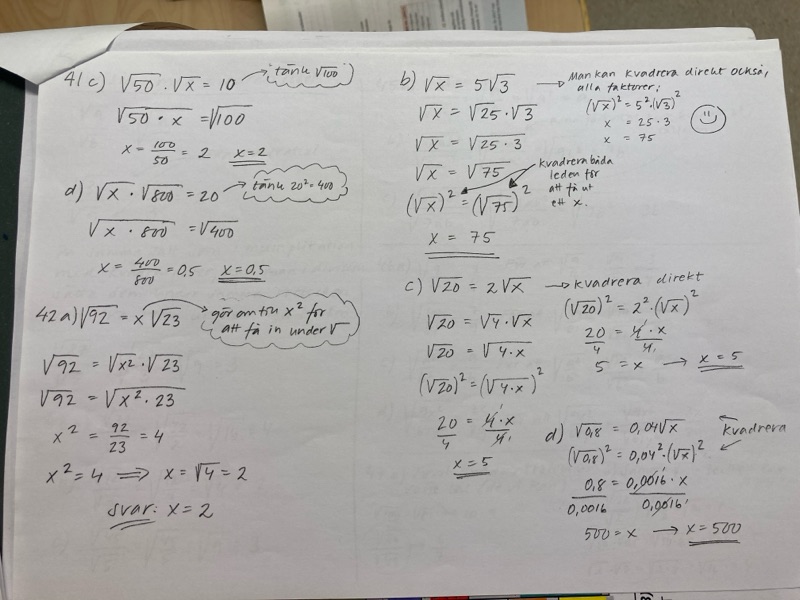 41 c) √50 · √x = 10 → tänk √100
√50 · x = √100
x = 100/50 = 2 x = 2
d) √x · √800 = 20 → tänk 20² = 400
√x · 800 = √400
x = 400/800 = 0,5 x = 0,5
42 a) √92 = x √23 → gör om till x² för att få in under √
√92 = √x² · √23
√92 = √x² · 23
x² = 92/23 = 4
x² = 4 ⟹ x = √4 = 2
svar: x = 2
b) √x = 5√3 → Man kan kvadrera direkt också,
alla faktorer:
(√x)² = 5² · (√3)²
x = 25 · 3
x = 75
√x = √25 · √3
√x = √25 · 3
√x = √75
kvadrera båda
leden för
att få ut
ett x.
(√x)² = (√75)²
x = 75
c) √20 = 2√x → kvadrera direkt
(√20)² = 2² · (√x)²
20/4 = 4 · x/4
5 = x → x = 5
√20 = √4 · √x
√20 = √4 · x
(√20)² = (√4 · x)²
20/4 = 4 · x/4
x = 5
d) √0,8 = 0,04√x
kvadrera
(√0,8)² = 0,04² · (√x)²
0,8/0,0016 = 0,0016 · x/0,0016
500 = x → x = 500